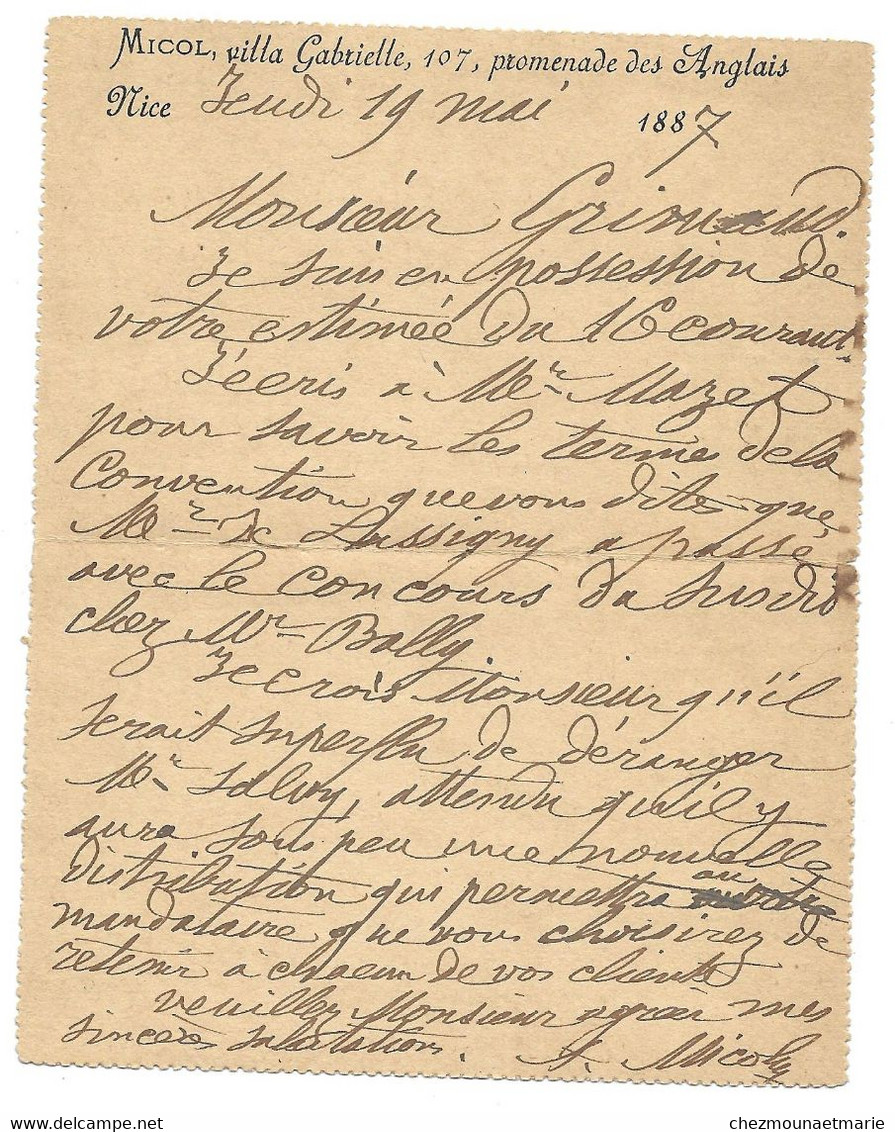 MICOL, villa Gabrielle, 107, promenade des Anglais
Nice Jeudi 19 mai 1887
Monsieur Grimaud.
Je suis en possession de
votre estimée du 16 courant.
J'écris à Mr Mazet
pour savoir les termes de la
Convention que vous dites que,
Mr de Lassigny a passé
avec le concours du susdit
chez Mr Bally
Je crois Monsieur qu'il
serait superflu de déranger
Mr Salvy, attendu qu'il y
aura sous peu une nouvelle
distribution qui permettra au
mandataire que vous choisirez de
retenir à chacun de vos clients
veuillez Monsieur agréer mes
sincères salutations. A. Micol
www.delcampe.net
chezmounaetmarie